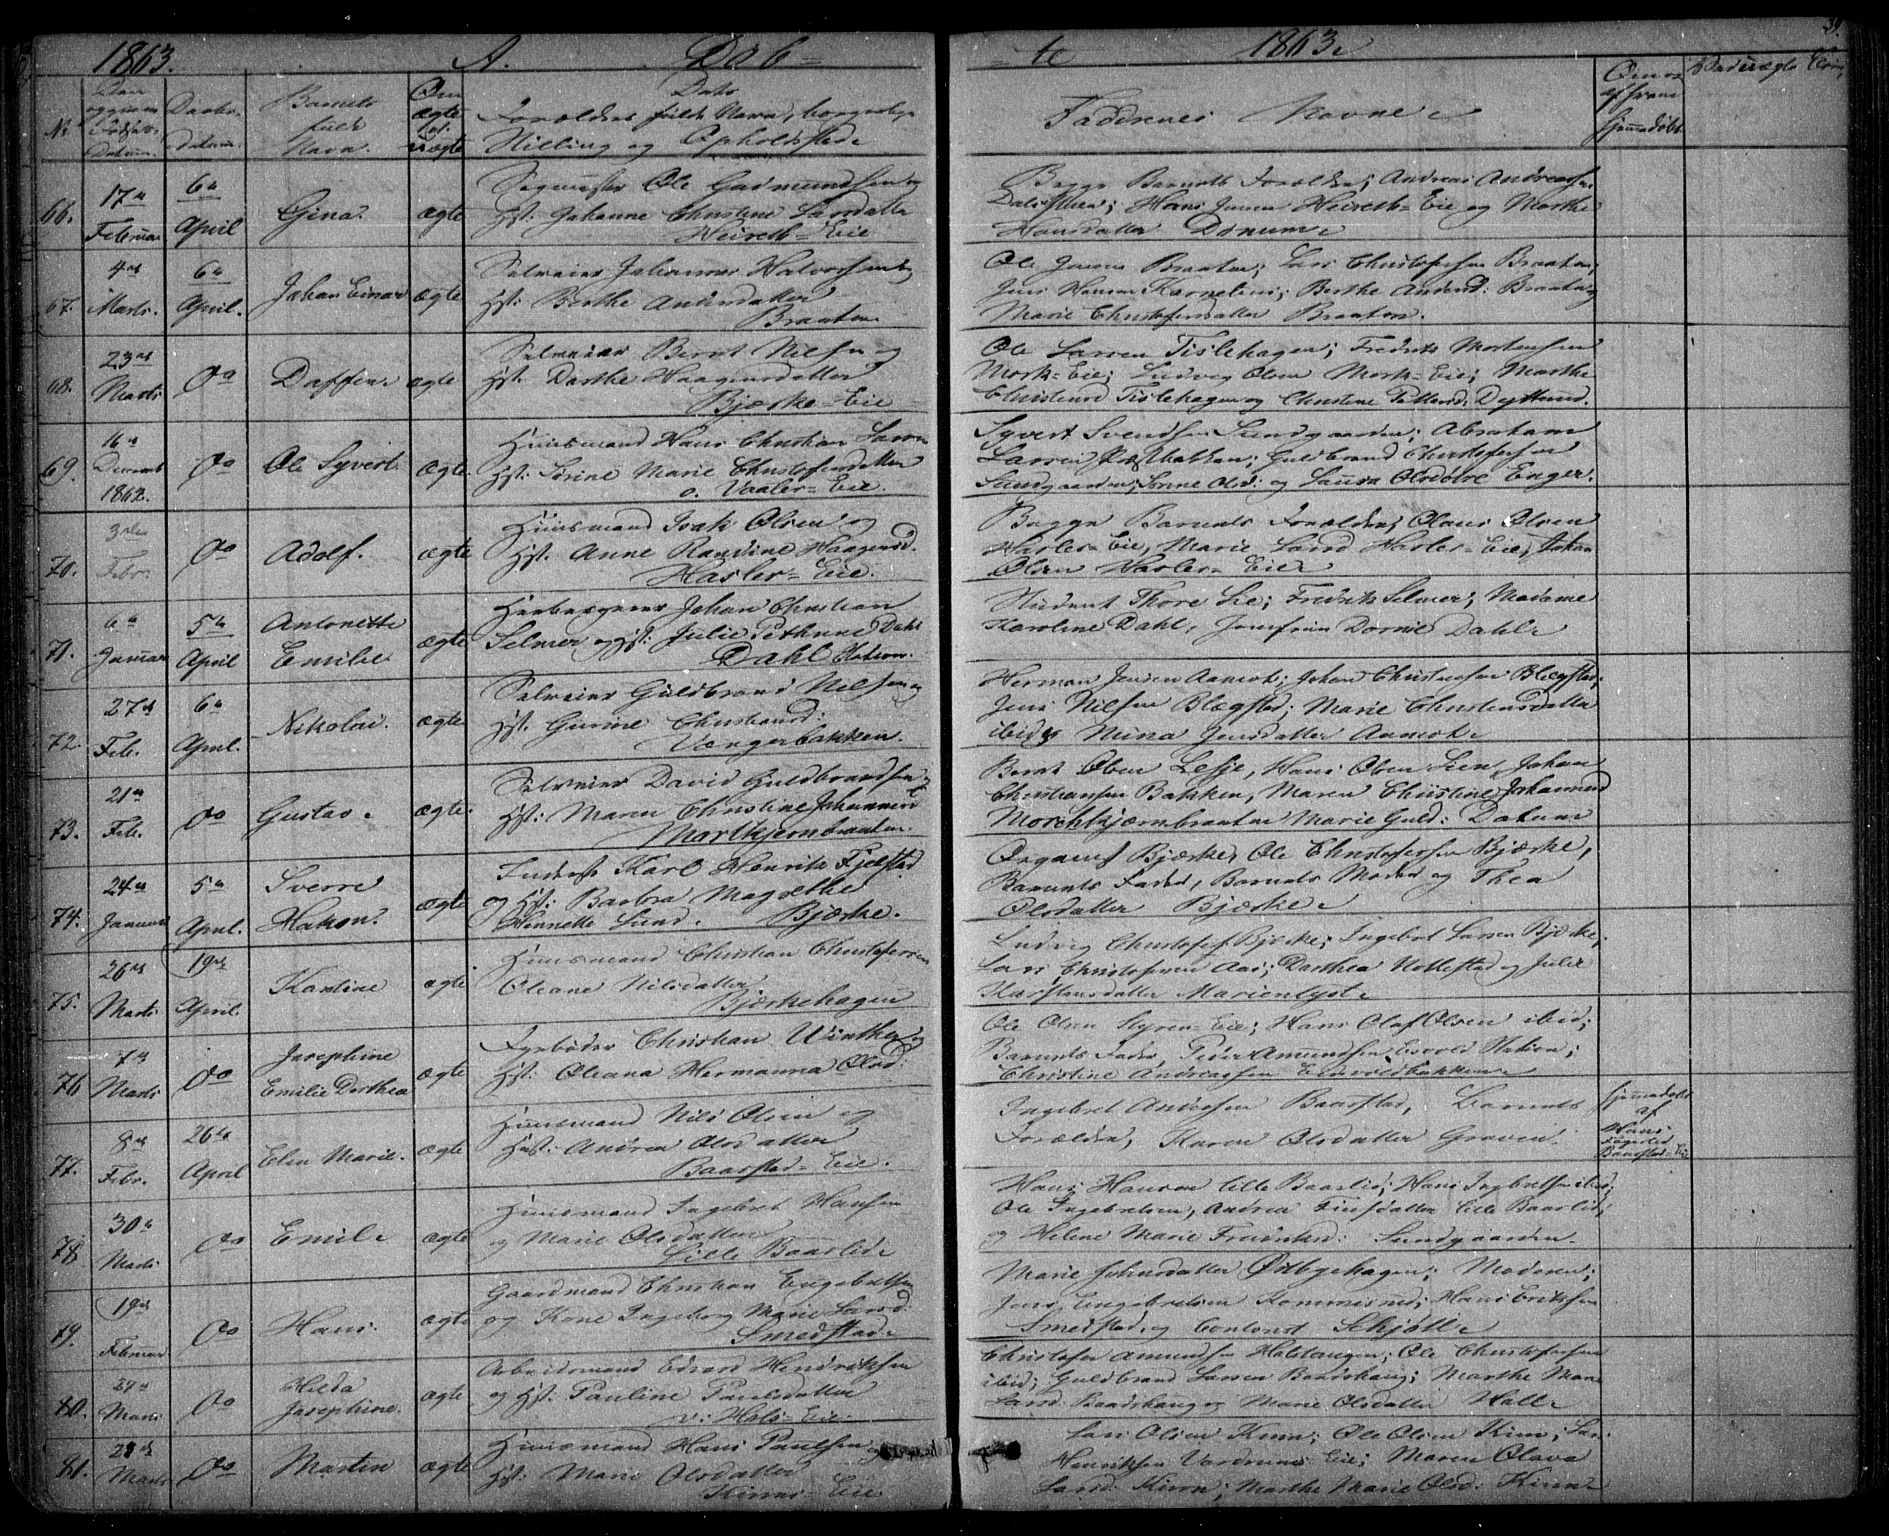 1863. A. Døb-
-te 1863.
39.
No.
Barnets
fulde
Navn.
Daabs-
datum.
ægte
uægte
Forældres fulde Navn, borgerlige
Stilling og Opholdssted.
Faddernes Navne.
Om og
af hvem
hjemmedøbt
66.
17de
Februar
6te
April
Gina.
ægte
Ole Gudmundsen og
Hst: Johanne Christine Larsdatter
Heireth-Eie
Begge Barnets Forældre; Andreas Andreassen
Hans Jensen Heireth-Eie og Marthe
Hansdatter Dønnum.
67.
4de
Marts.
6te
April.
Johan Einar
ægte
Selveier Johannes Halvorsen og
Hst: Berthe Andersdatter
Braaten
Ole Jensen Braaten; Lars Christofersen Braaten;
Jens Hansen Kornelius; Berthe Andersd: Braaten og
Marie Christofersdatter Braaten.
68.
23de
Marts
Do
Daffin
ægte
Selveier Bernt Nilsen og
Hst: Dorthe Haagensdatter
Bjerke-Eie
Ole Larsen Tislehagen; Fredrik Mortensen
Mork-Eie; Ludvig Olsen Mork-Eie; Marthe
Christensd Tislehagen og Christine Pettersd. Dyttund.
69.
16de
Decemb
1862.
Do
Ole Syvert.
ægte
Huusmand Hans Christian Larsen
Hst: Serine Marie Christofersdatter
o. Vaaler-Eie.
Syvert Svendsen Sundgaarden; Abraham
Larsen Guldbrand Christofersen
Sundgaarden; Serine Olsd: og Laura Olsd øvre Enger.
70.
3die
Febr.
Do
Adolf.
ægte
Huusmand Isak Olsen og
Hst: Anne Randine Haagensd.
Hasler-Eie.
Begge Barnets Forældre; Olaus Olsen
Hasler-Eie, Marie Larsd Hasler-Eie, Johan
Olsen Hasler-Eie
71.
6te
Januar
5te
April
Antonette
Emilie
ægte
Herbergerer Johan Christian
Selmer og Hst: Julie Pethrine Dahl
Dahl Station.
Student Thore Lie; Fredrik Selmer; Madame
Karoline Dahl, Jomfru Dorine Dahl.
72.
27de
Feb.
6te
April.
Nikolai.
ægte
Selveier Guldbrand Nilsen og
Hst: Gurine Christiansd:
Vængerbakken.
Herman Jensen Aamot; Johan Christiansen Blegstad;
Jens Nilsen Blegstad; Marie Christensdatter
ibid og Mina Jensdatter Aamot.
73.
21de
Feb.
Do
Gustav.
ægte.
Selveier David Guldbrandsen og
Hst: Maren Christine Johannesd
Martkjernbraaten.
Bernt Olsen Lesje, Hans Olsen Lien, Johan
Christiansen Bakken, Maren Christine Johannesd
Morthkjernbraaten Marie Guld:
74.
24de
Januar
5te
April.
Sverre
Hakon.
ægte
Karl Henrik Fjelstad
og Hst: Barbra Magrethe
Hennette Lund. Bjerke.
Organist Bjerke, Ole Christofersen Bjerke,
Barnets Fader, Barnets Moder og Thea
Olsdatter Bjerke.
75.
26de
Marts
19de
April.
Karline
ægte
Huusmand Christian Christofersen
Oleane Nilsdatter
Bjerkehagen
Ludvig Christofers Bjerke; Ingebret Larsen Bjerke,
Lars Christofersen Aas; Dorthea Nottestad og Julie
Karstensdatter Marienlyst.
76
7de
Marts
Do
Josephine
Emilie Dorthea
ægte
Fyrbøder Christian Winther og
Hst: Oleana Hermanna Olsd:
Ole Olsen Styren-Eie; Hans Olaf Olsen ibid;
Barnets Fader, Peder Amundsen Eisvold Station;
Christine Andreassen Eidsvoldbakken
77.
8de
Febr.
26de
April
Elen Marie.
ægte
Huusmand Nils Olsen og
Hst: Andrea Olsdatter
Baarstad-Eie.
Ingebret Andersen Baarstad, Barnets
Forældre, Karen Olsdatter Graven.
hjemmedøbt
af
Hans
Baarstad-Eie
78
30te
Marts
Do
Emil.
ægte
Huusmand Ingebret Hansen
og Marie Olsdatter
Lille Baarlid.
Hans Hansen lille Baarlid; Hans Ingebretsen ibid;
Ole Ingebretsen, Andrea Finsdatter Lille Baarlid;
og Helene Marie Fredriksd: Sundgaarden.
79.
19de
Februar
Do
Hans.
ægte
Gaardmand Christian Engebretsen
og Kone Ingeborg Marie Larsd:
Smedstad.
Marie Johnsdatter Østbyehagen; Moderen;
Jens Engebretsen Kommisrud; Hans Eriksen
Smedstad og Schjøtt.
80.
27de
Marts
Do
Hilda
Josephine.
ægte
Arbeidsmand Edvard Hendriksen
og Hst: Pauline Paulsdatter
v: Hols-Eie.
Christofer Amundsen Holstangen; Ole Christofersen
ibid; Guldbrand Larsen Baadshaug; Marthe Marie
Larsd: Baadshaug og Marie Olsdatter Holt.
81.
Marts
Do
Martin
ægte
Huusmand Hans Paulsen og
Hst: Marie Olsdatter
Kinns-Eie.
Lars Olsen Kinn; Ole Olsen Kinn; Lars
Henriksen Eie; Maren Olava
Larsd: Kinn; Marthe Marie Olsd: Kinn